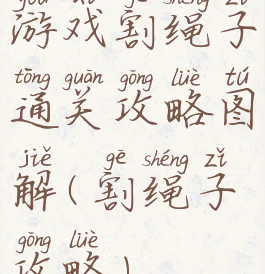 yóu xì gē shéng zi
游戏割绳子
tōng guān gōng lüè tú
通关攻略图
jiě gē shéng zǐ
解(割绳子
gōng lüè
攻略)